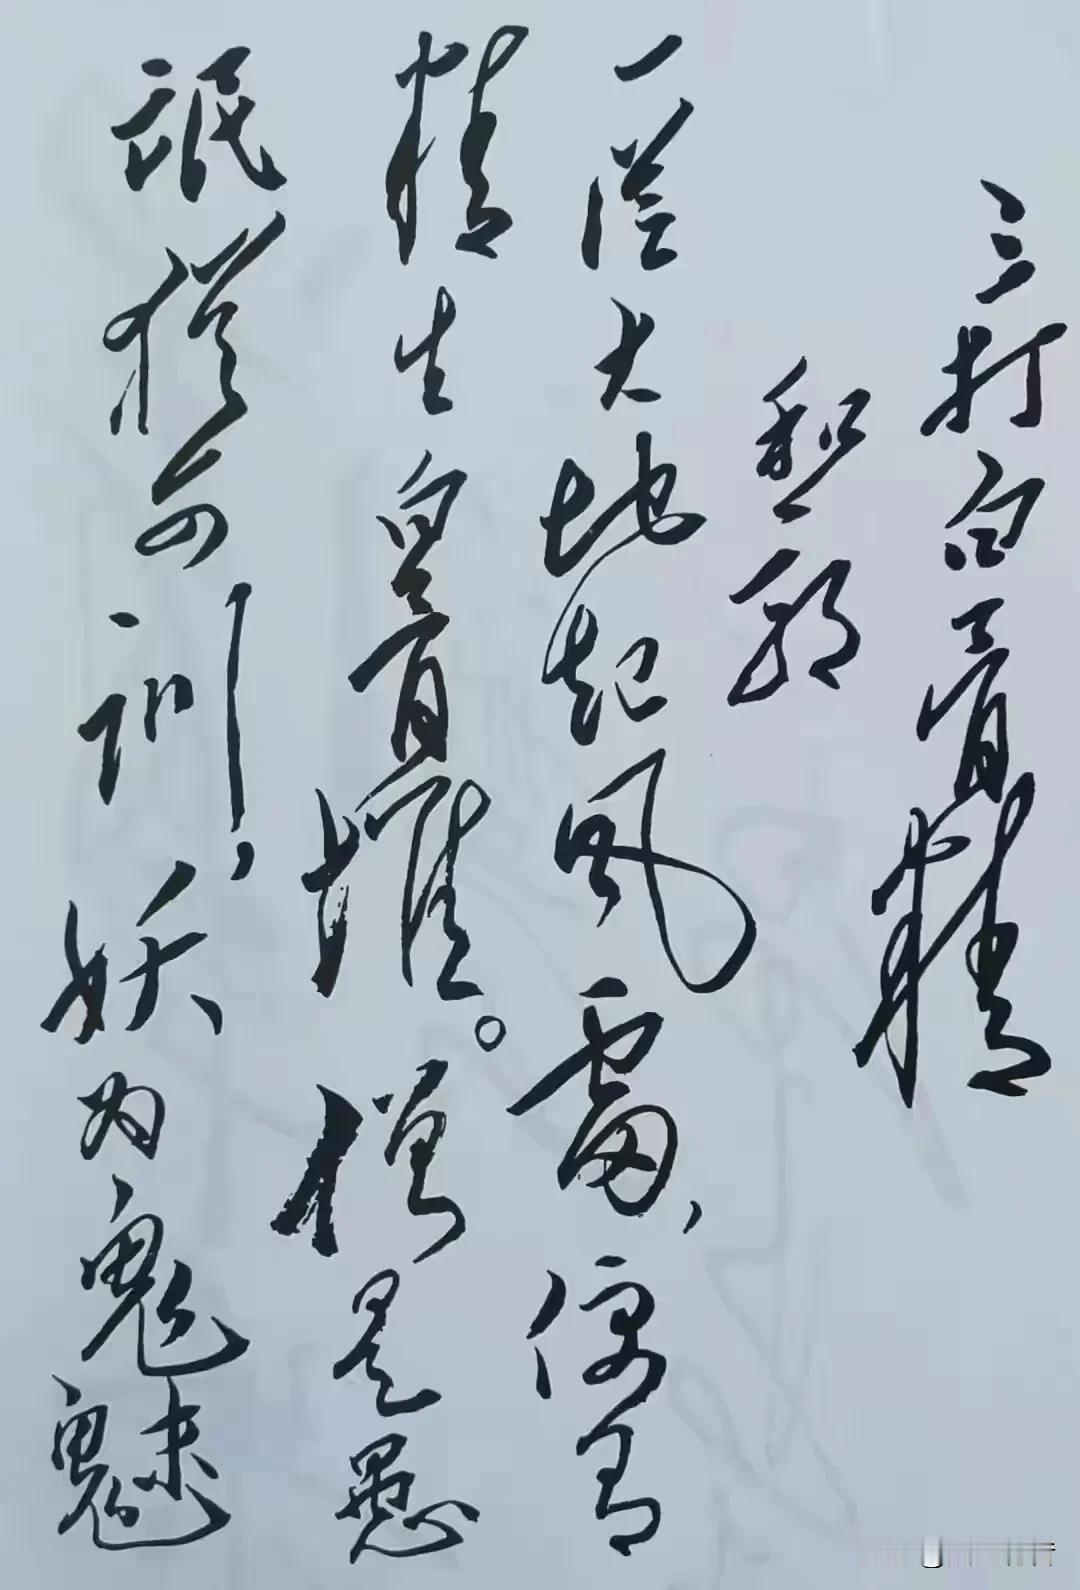 三打白骨精
和郭
一从大地起风雷，便有
精生白骨堆。僧是愚
氓犹可训，妖为鬼魅